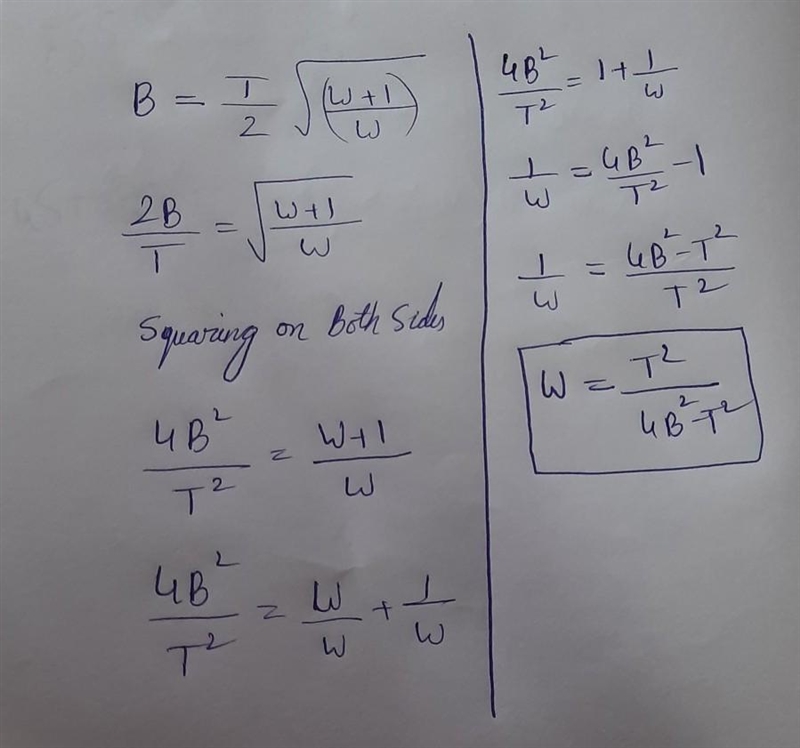 B = T/2 √((W+1)/W)
2B/T = √(W+1/W)
Squaring on Both Sides
4B²/T² = W+1/W
4B²/T² = W/W + 1/W
4B²/T² = 1 + 1/W
1/W = 4B²/T² - 1
1/W = 4B²-T²/T²
W = T²/4B²-T²